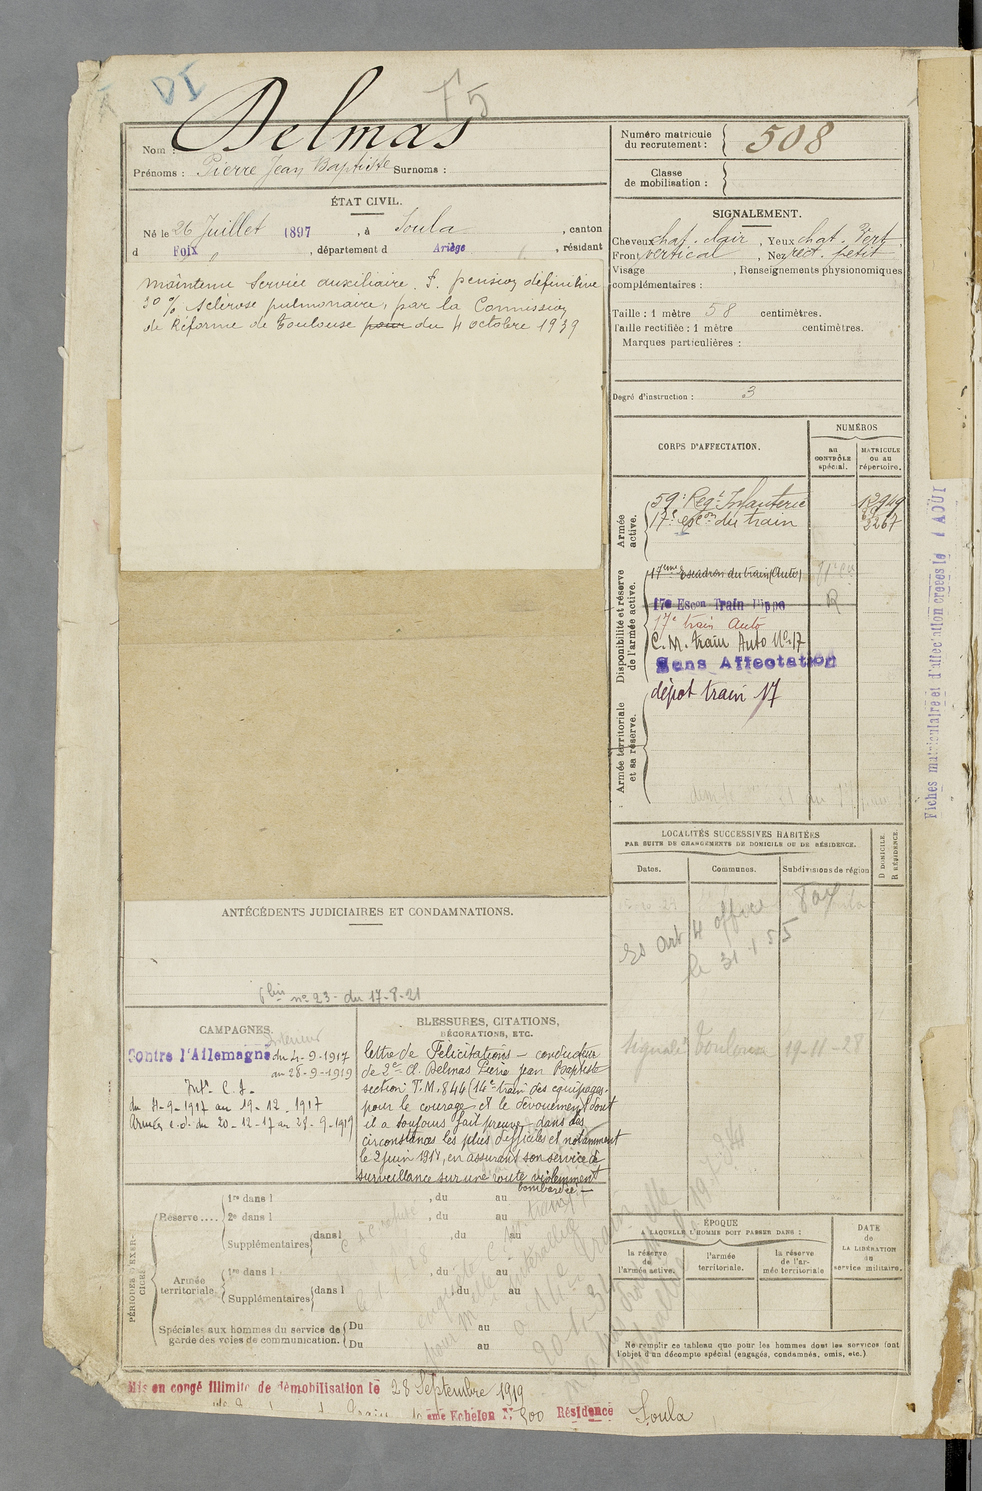 DI
F5
Nom : Delmas
Prénoms : Pierre Jean Baptiste Surnoms :
ÉTAT CIVIL.
Né le 26 Juillet 1897, à Soula, canton
d Foix, département d Ariège, résidant
maintenu Service auxiliaire. S. pension définitive
30 % sclérose pulmonaire, par la Commission
de Réforme de Toulouse pour du 4 octobre 1939
ANTÉCÉDENTS JUDICIAIRES ET CONDAMNATIONS.
no 23 - du 17-8-21
CAMPAGNES.
Intérieur
Contre l'Allemagne du 4-9-1917
au 28-9-1919
Intr. C. S.
du 4-9-1917 au 19-12-1917
Armées c.d. du 20-12-17 au 28-9-1919
BLESSURES, CITATIONS,
DÉCORATIONS, ETC.
lettre de Félicitations - conducteur
de 2e cl. Delmas Pierre jean Baptiste
section T.M. 844 (14e train des équipages
pour le courage et le dévouement dont
il a toujours fait preuve dans des
circonstances les plus difficiles et notamment
le 2 juin 1918, en assurant son service de
surveillance sur une route violemment
bombardée -
PÉRIODES D'EXERCICES
Réserve ....
1re dans l , du au
2e dans l , du au
Supplémentaires dans l , du au
Armée territoriale.
1re dans l , du au
Supplémentaires dans l du au
Spéciales aux hommes du service de garde des voies de communication.
Du au
Du au
Mis en congé illimité de démobilisation le 28 Septembre 1919
ème Echelon N° 500 Résidence Soula
Numéro matricule du recrutement : 508
Classe de mobilisation :
SIGNALEMENT.
Cheveux chat. clair, Yeux chat. Vert,
Front vertical, Nez rect. petit
Visage , Renseignements physionomiques
complémentaires :
Taille : 1 mètre 58 centimètres.
Taille rectifiée : 1 mètre centimètres.
Marques particulières :
Degré d'instruction : 3
CORPS D'AFFECTATION.
NUMÉROS
au CONTRÔLE spécial.
MATRICULE ou au répertoire.
Armée active.
59e Regt Infanterie 12949
17e escon du train 3267
Disponibilité et réserve de l'armée active.
17ème Escadron du train (Auto)
17e Escon Train Hippo R
17e train Auto
C.M. train Auto No 17
Sans Affectation
dépot train 17
Armée territoriale et sa réserve.
LOCALITÉS SUCCESSIVES HABITÉES
PAR SUITE DE CHANGEMENTS DE DOMICILE OU DE RÉSIDENCE.
Dates. Communes. Subdivisions de région
D DOMICILE.
R RÉSIDENCE.
Art 4 office
le 31 1 55
Signalé Toulouse 19-11-28
ÉPOQUE
A LAQUELLE L'HOMME DOIT PASSER DANS :
la réserve de l'armée active.
l'armée territoriale.
la réserve de l'armée territoriale
DATE de LA LIBÉRATION du service militaire.
Ne remplir ce tableau que pour les hommes dont les services font
l'objet d'un décompte spécial (engagés, condamnés, omis, etc.)
Fiches matriculaire et d'affectation créées le 4 AOUT